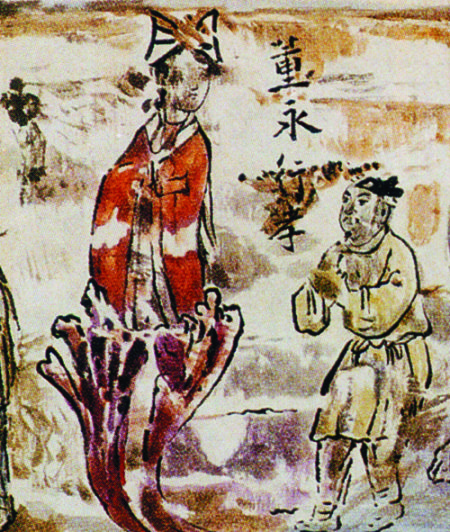 董永行孝